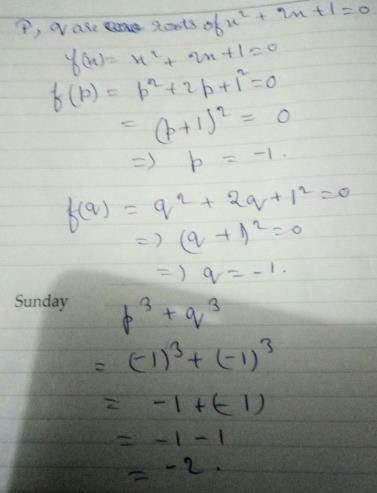 P, q are roots of x² + 2x + 1 = 0
f(x) = x² + 2x + 1 = 0
f(p) = p² + 2p + 1² = 0
= (p+1)² = 0
=) p = -1.
f(q) = q² + 2q + 1² = 0
=) (q + 1)² = 0
=) q = -1.
Sunday
p³ + q³
= (-1)³ + (-1)³
= -1 + (-1)
= -1 - 1
= -2.